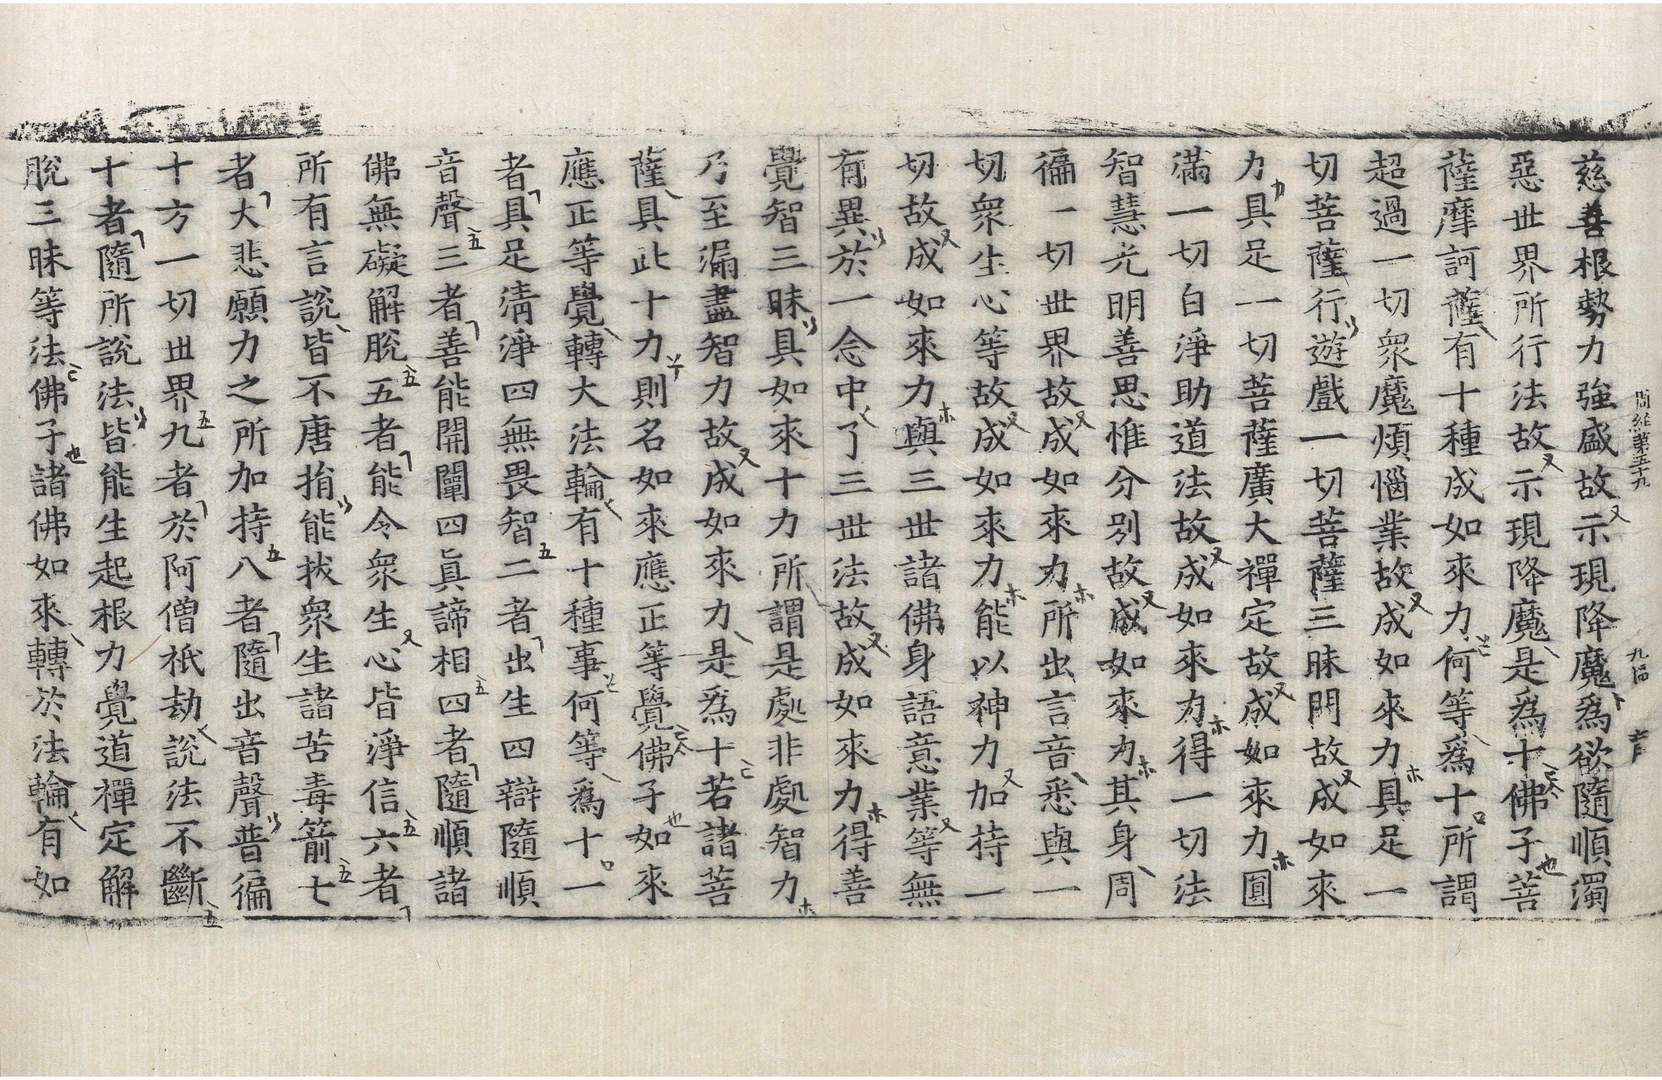 慈善根勢力強盛故示現降魔爲欲隨順濁
惡世界所行法故示現降魔是爲十佛子菩
薩摩訶薩有十種成如來力何等爲十所謂
超過一切衆魔煩惱業故成如來力具足一
切菩薩行遊戲一切菩薩三昧門故成如來
力具足一切菩薩廣大禪定故成如來力圓
滿一切白淨助道法故成如來力得一切法
智慧光明善思惟分別故成如來力其身周
徧一切世界故成如來力所出言音悉與一
切衆生心等故成如來力能以神力加持一
切故成如來力與三世諸佛身語意業等無
有異於一念中了三世法故成如來力得善
覺智三昧具如來十力所謂是處非處智力
乃至漏盡智力故成如來力是爲十若諸菩
薩具此十力則名如來應正等覺佛子如來
應正等覺轉大法輪有十種事何等爲十一
者具足淸淨四無畏智二者出生四辯隨順
音聲三者善能開闡四眞諦相四者隨順諸
佛無礙解脫五者能令衆生心皆淨信六者
所有言說皆不唐捐能拔衆生諸苦毒箭七
者大悲願力之所加持八者隨出音聲普徧
十方一切世界九者於阿僧祇劫說法不斷
十者隨所說法皆能生起根力覺道禪定解
脫三昧等法佛子諸佛如來轉於法輪有如